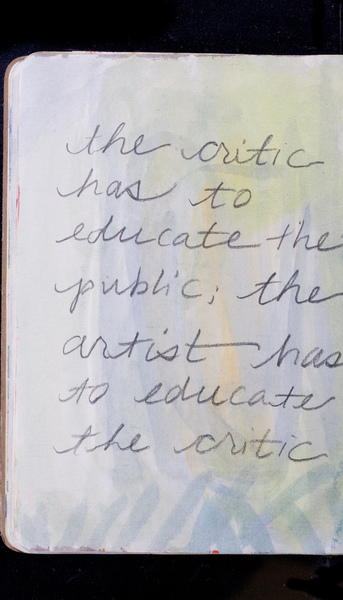 the critic
has to
educate the
public; the
artist has
to educate
the critic